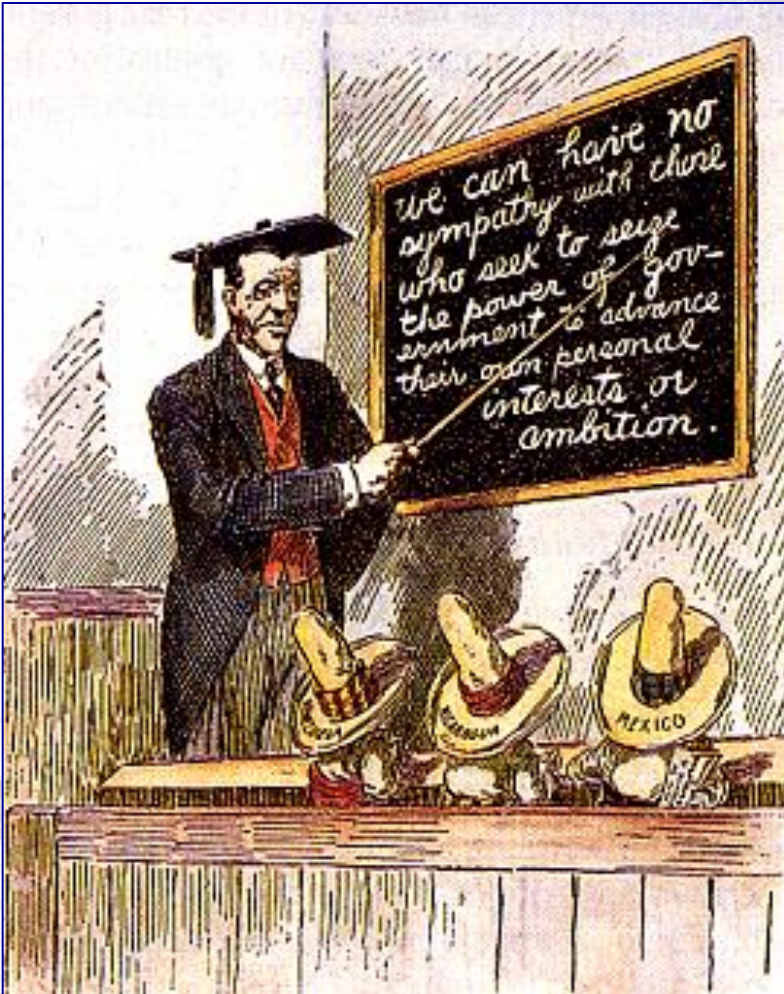 We can have no
sympathy with those
who seek to seize
the power of gov-
ernment to advance
their own personal
interests or
ambition.
NICARAGUA
MEXICO